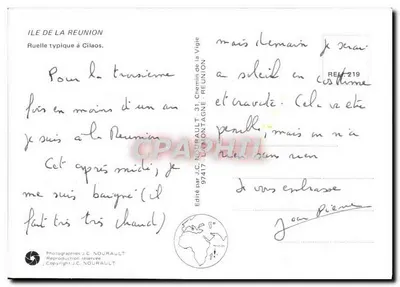 ILE DE LA REUNION
Ruelle typique à Cilaos.
Pour la troisième
fois en moins d'un an
je suis à la Réunion
Cet après midi, je
me suis baigné (il
fait très très chaud)
mais demain je serai
a soleil en costume
et cravate. Cela va être
pénible, mais on n'a
rien sans rien
Je vous embrasse
Jean Pierre
REU 219
Edité par J.C. NOURAULT - 31, Chemin de la Vigie
97417 LA MONTAGNE REUNION
Photographies J.C. NOURAULT
Reproduction réservée
Copyright J.C. NOURAULT
CPAPHIL